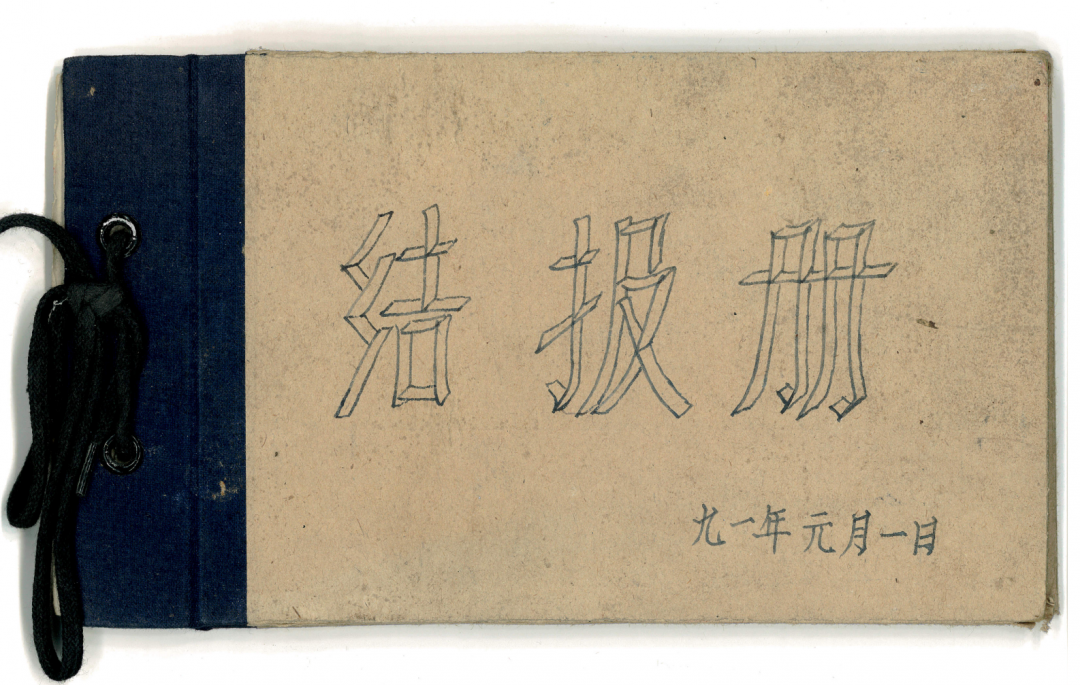 结报册
九一年元月一日